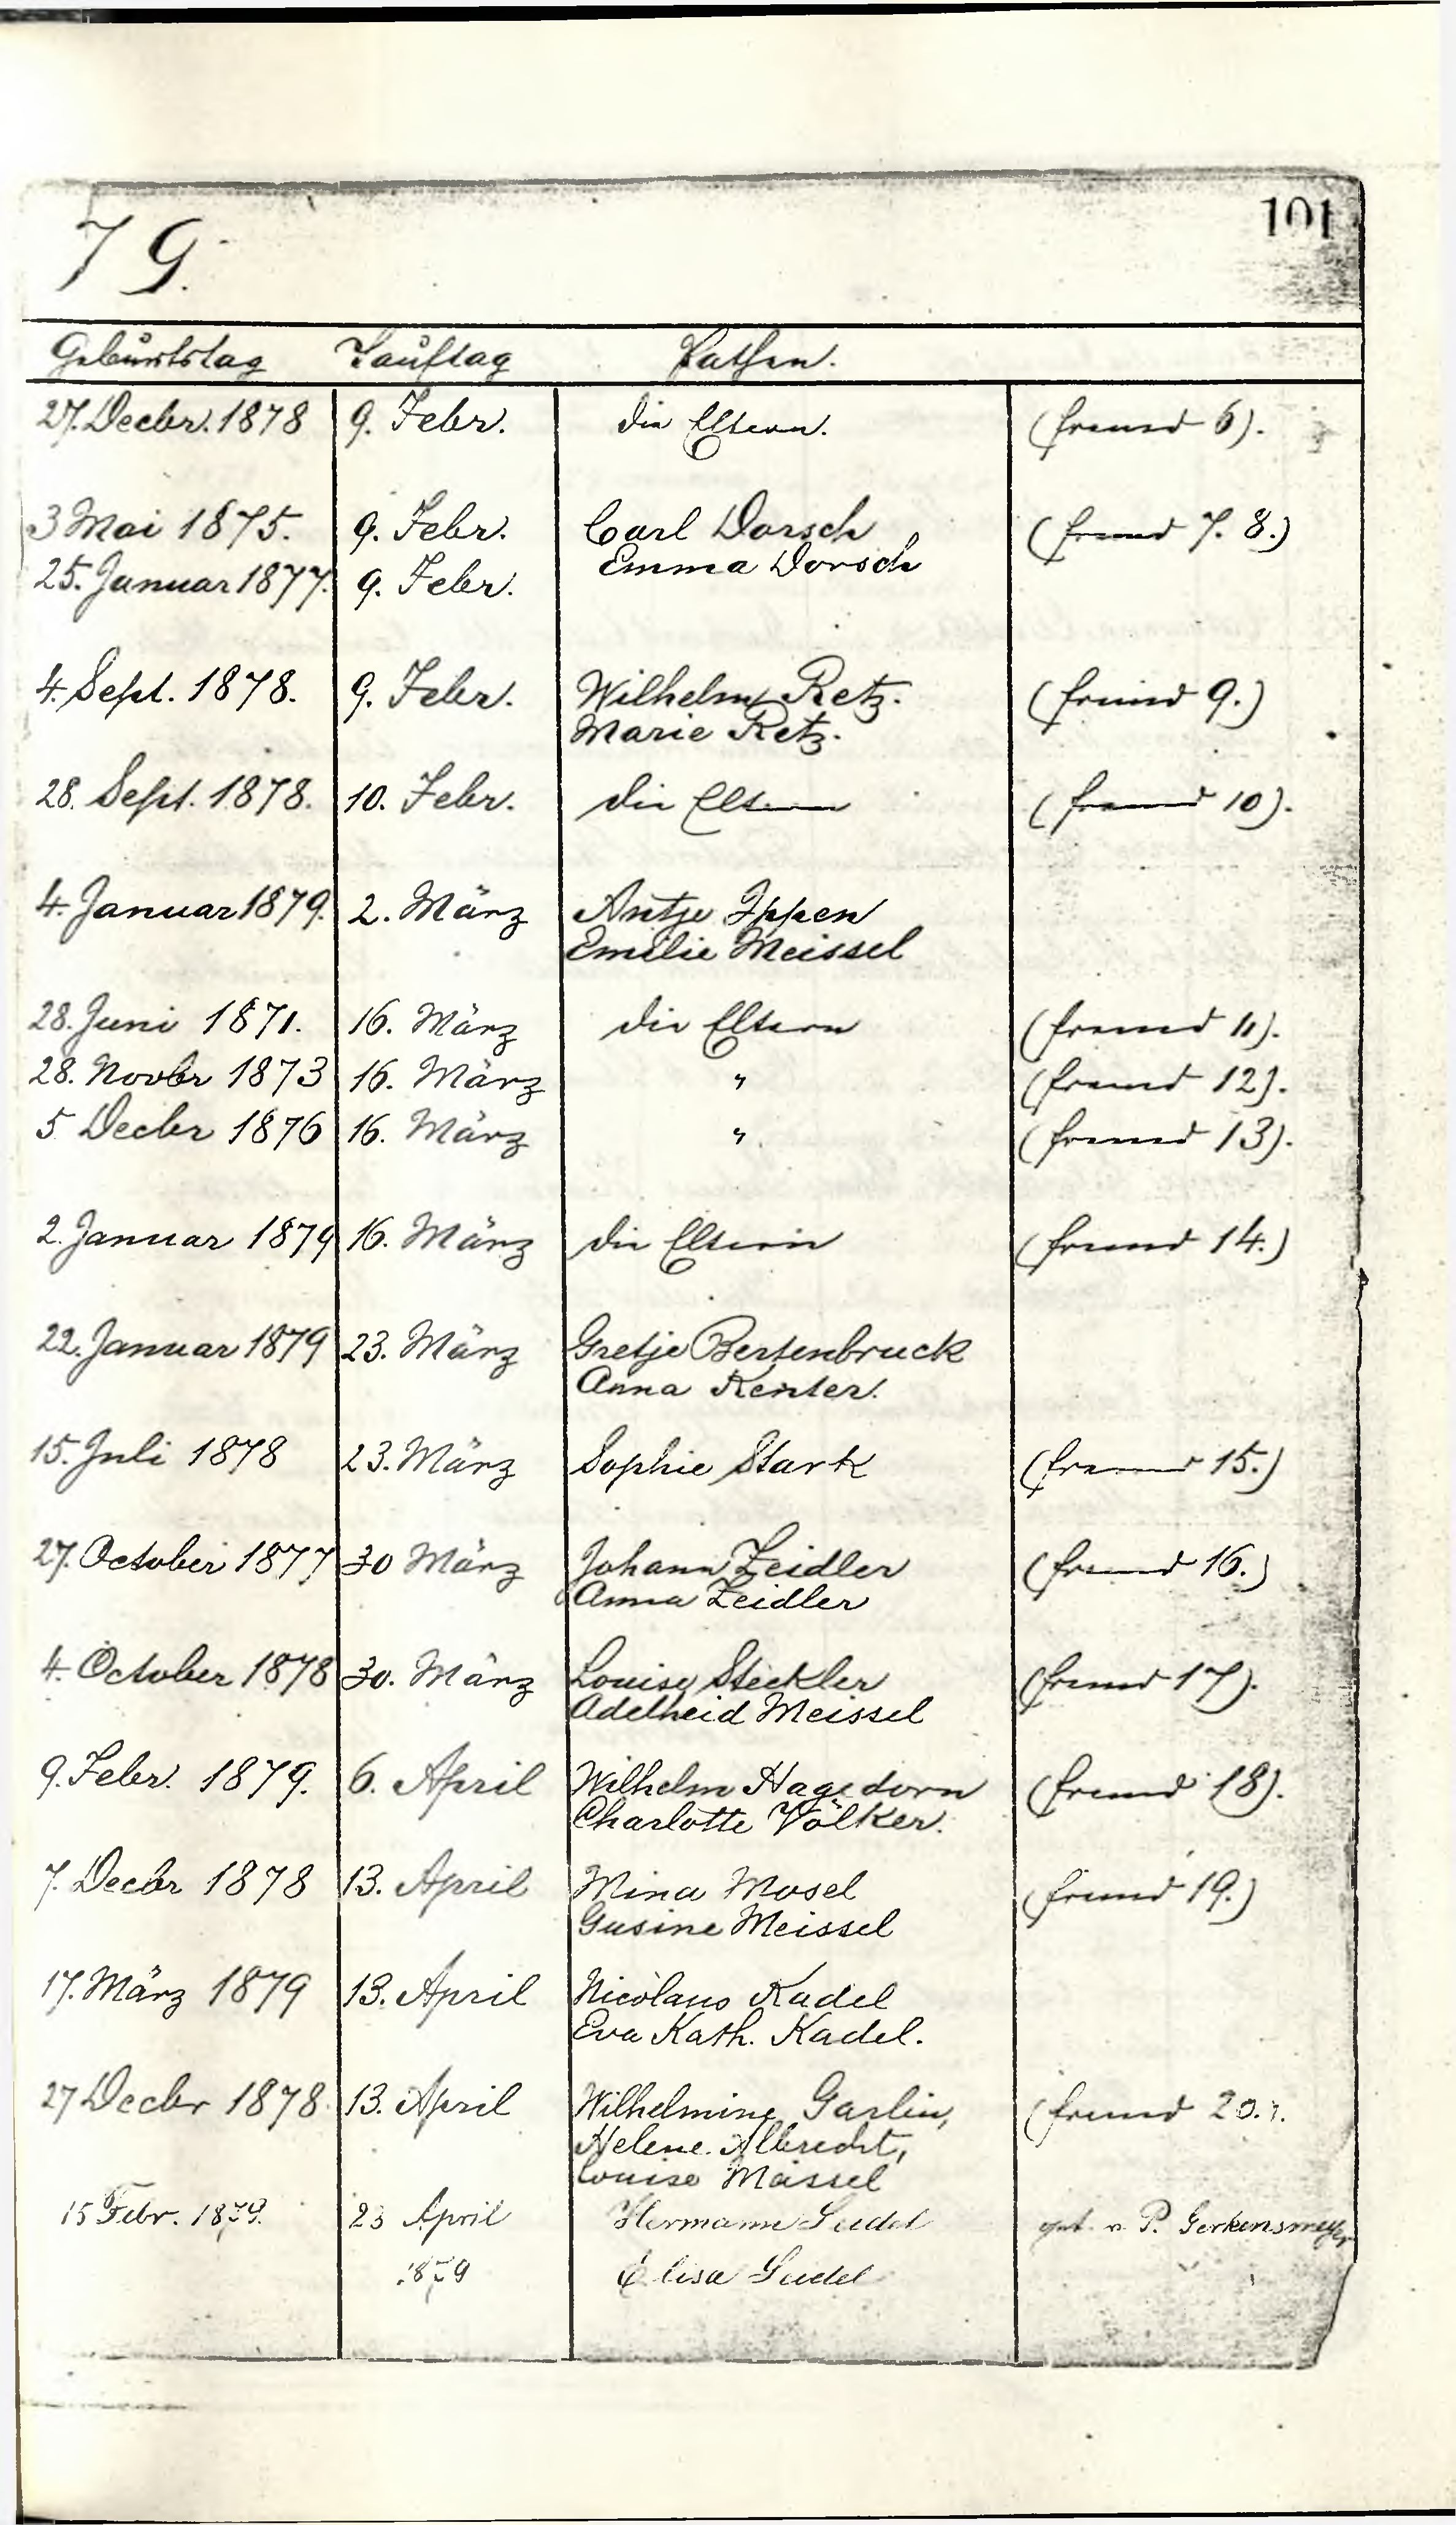 101
79.
Geburtstag Tauftag Pathen.
27. Decbr. 1878 9. Febr. die Eltern. (fremd 6).
3 Mai 1875. 9. Febr. Carl Dorsch (fremd 7. 8.)
Emma Dorsch
25. Januar 1877. 9. Febr.
4. Sept. 1878. 9. Febr. Wilhelm Retz. (fremd 9.)
Marie Retz.
28. Sept. 1878. 10. Febr. die Eltern (fremd 10).
4. Januar 1879. 2. März Antje Ippen
Emilie Meissel
28. Juni 1871. 16. März die Eltern (fremd 11).
28. Novbr 1873 16. März " (fremd 12).
5 Decbr 1876 16. März " (fremd 13).
2. Januar 1879 16. März die Eltern (fremd 14.)
22. Januar 1879 23. März Gretje Bertenbruck
Anna Renter.
15. Juli 1878 23. März Sophie Stark (fremd 15.)
27. October 1877 30 März Johann Zeidler (fremd 16.)
Anna Zeidler
4. October 1878 30. März Louise Steckler (fremd 17).
Adelheid Meissel
9. Febr. 1879. 6. April Wilhelm Hagedorn (fremd 18).
Charlotte Völker.
7. Decbr 1878 13. April Mina Mosel (fremd 19.)
Gusine Meissel
17. März 1879 13. April Nicolaus Kadel
Eva Kath. Kadel.
27 Decbr 1878. 13. April Wilhelmine Garlin, (fremd 20.).
Helene Albrecht,
Louise Meissel
15 Febr. 1879. 23 April Hermann Seidel get. v. P. Gerkensmeyer
1879 Elisa Seidel